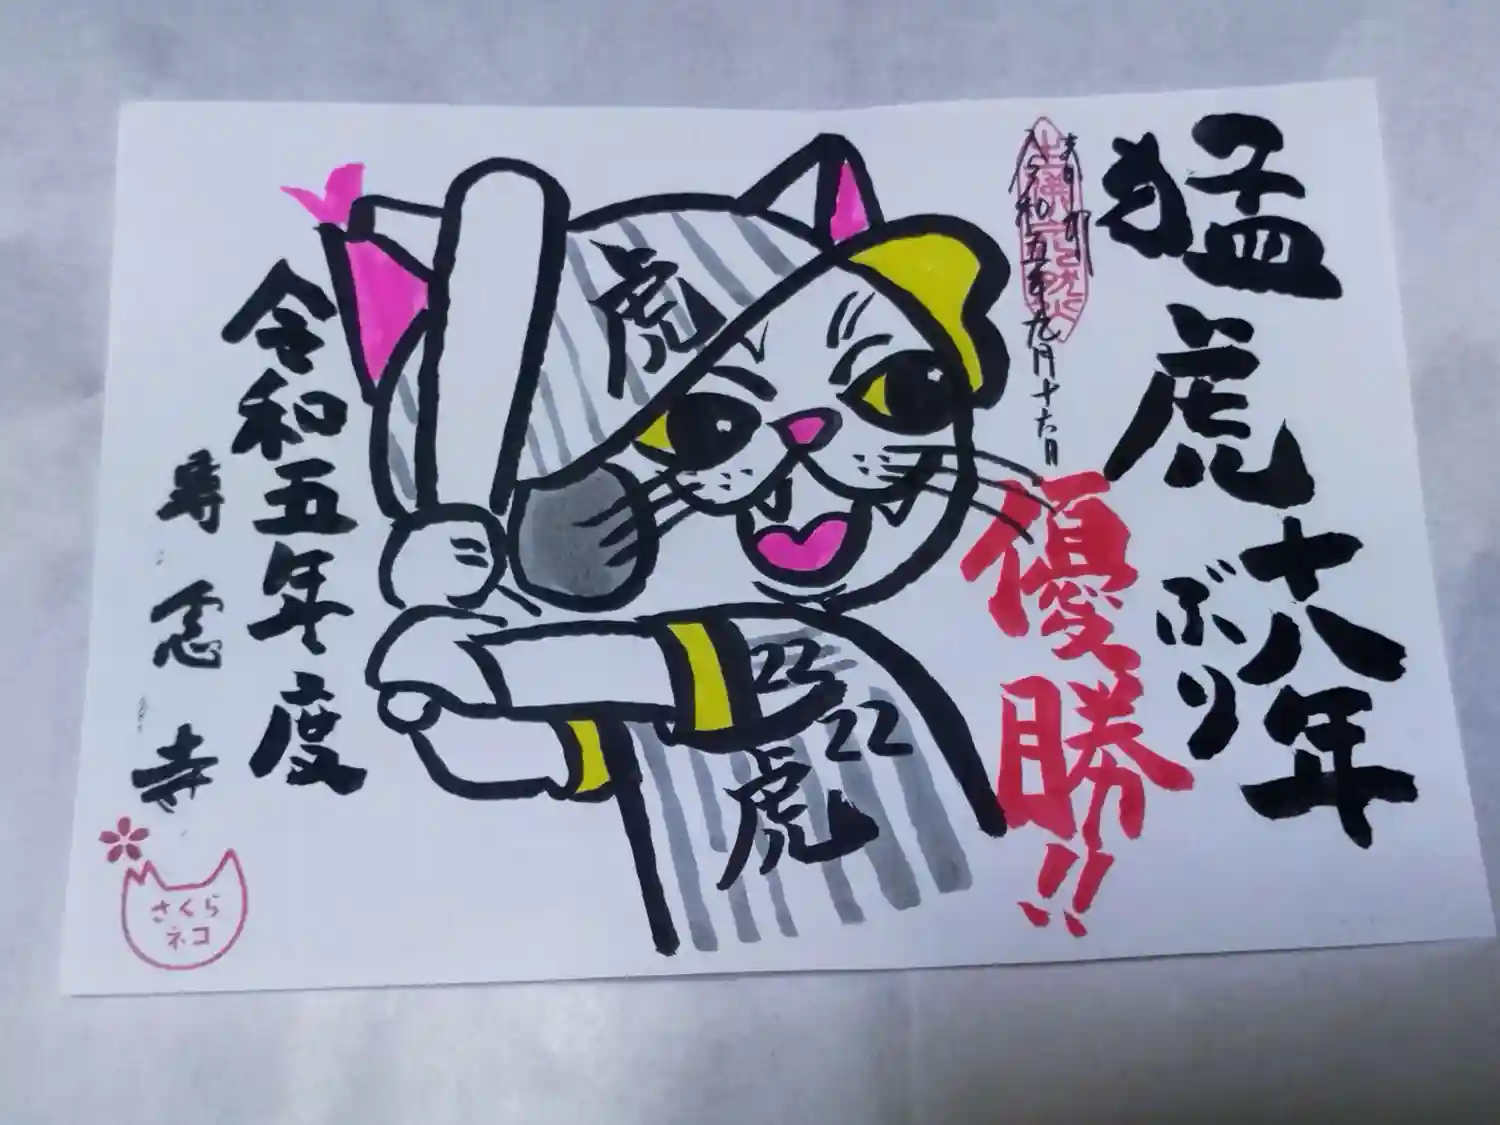 猛虎
十八年
ぶり
優勝!!
令和五年九月十六日
虎
25
22
虎
令和五年度
専念寺
さくら
ネコ